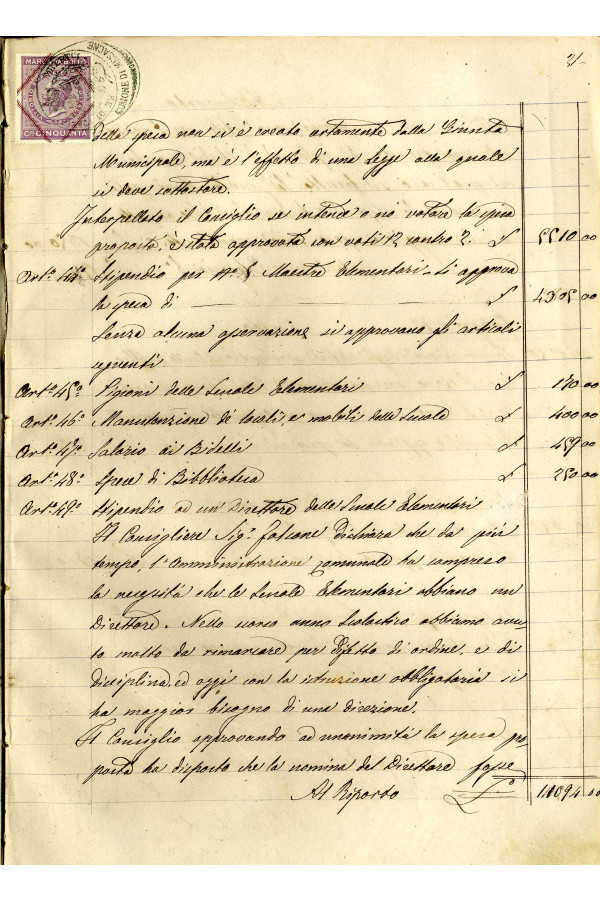 21
MARCA DA BOLLO
Cmi CINQUANTA
COMUNE DI MESAGNE
della spesa non si è creato certamente dalla Giunta
Municipale, ma è l'effetto di una legge alla quale
si deve sottostare.
Interpellato il Consiglio se intende o no votare la spesa
proposta, è stata approvata con voti 12 contro 2. £ 5510,00
Art.° 44° Stipendio per N.° 8 Maestre Elementari - Si approva
la spesa di £ 4305,00
Senza alcuna osservazione si approvano gli articoli
seguenti
Art.° 45° Pigioni delle Scuole Elementari £ 170,00
Art.° 46° Manutenzione di locali, e mobili delle Scuole £ 400,00
Art.° 47° Salario ai Bidelli £ 459,00
Art.° 48° Spese di Bibblioteca £ 250,00
Art.° 49° Stipendio ad un Direttore delle Scuole Elementari
Il Consigliere Sig.r Falcone dichiara che da più
tempo, l'Amministrazione comunale ha compreso
la necessità che le Scuole Elementari abbiano un
Direttore. Nello scorso anno Scolastico abbiamo avu-
to molto da rimarcare per difetto di ordine, e di
disciplina, ed oggi con la istruzione obbligatoria si
ha maggior bisogno di una direzione.
Il Consiglio approvando ad unanimità la spesa pro
posta ha disposto che la nomina del Direttore fosse
Al Riporto £ 11094,00